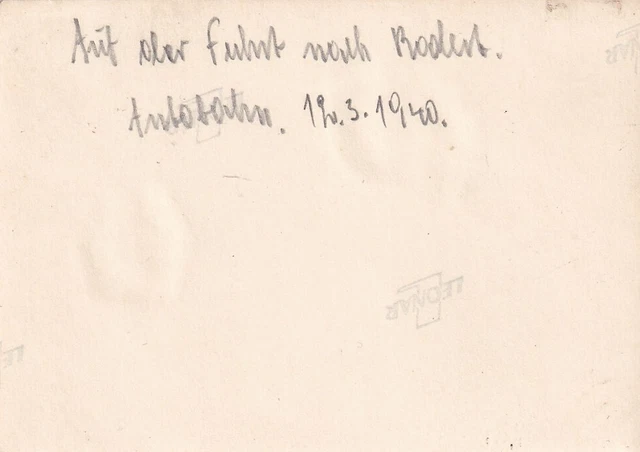 Auf der Fahrt nach
Autobahn. 12.3.1940.
LEONAR